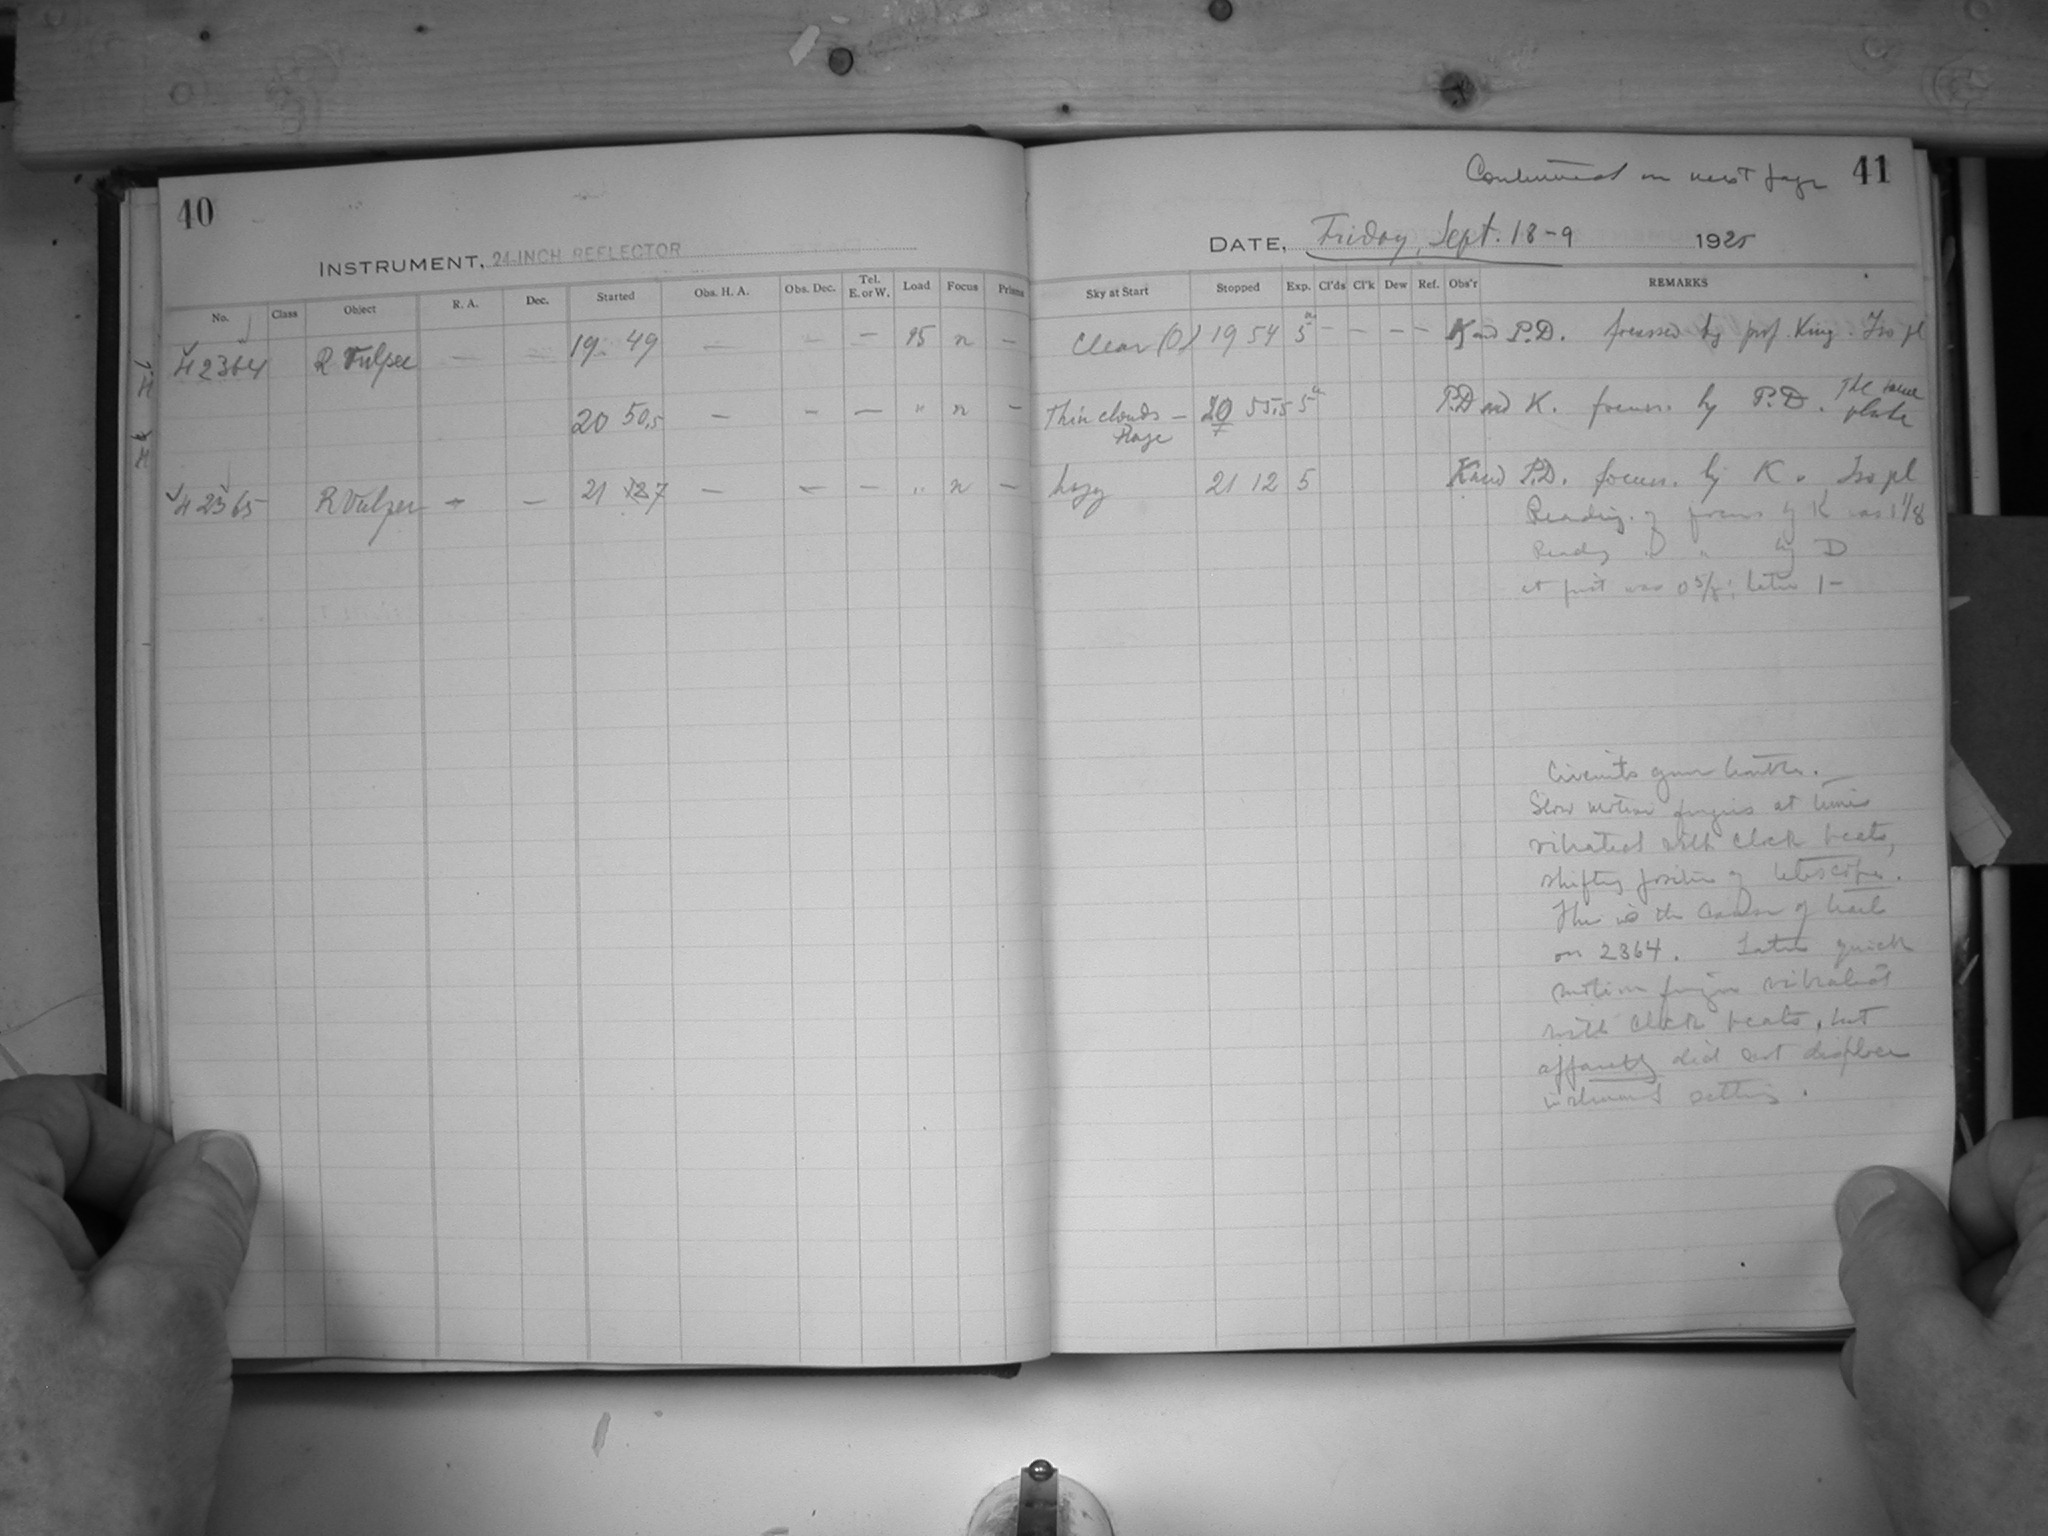 40
INSTRUMENT, 24-INCH REFLECTOR
No. Class Object R. A. Dec. Started Obs. H. A. Obs. Dec. Tel. E. or W. Load Focus Prisms
42364 R Vulpec — — 19 49 — — — 15 n —
20 50.5 — — — " n —
42365 R Vulpec — — 21 7 — — — " n —
Continued on next page 41
DATE, Friday, Sept. 18-9 1925
Sky at Start Stopped Exp. Cl'ds Cl'k Dew Ref. Obs'r REMARKS
Clear (0) 19 54 5 — — — — K and P.D. focussed by prof. King. Iso pl
Thin clouds — 20 55.5 5 P.D and K. focuss. by P.D. The same
Haze plate
hazy 21 12 5 K and P.D. focuss. by K. Iso pl
Reading of focus by K was 1 1/8
Reading " " by D
at first was 0 5/8; later 1 —
Circuits gave trouble.
Slow motion fingers at times
vibrated with clock beats,
shifting position of telescope.
This is the cause of trails
on 2364. Later quick
motion fingers vibrated
with clock beats, but
apparently did not displace
instrument setting.